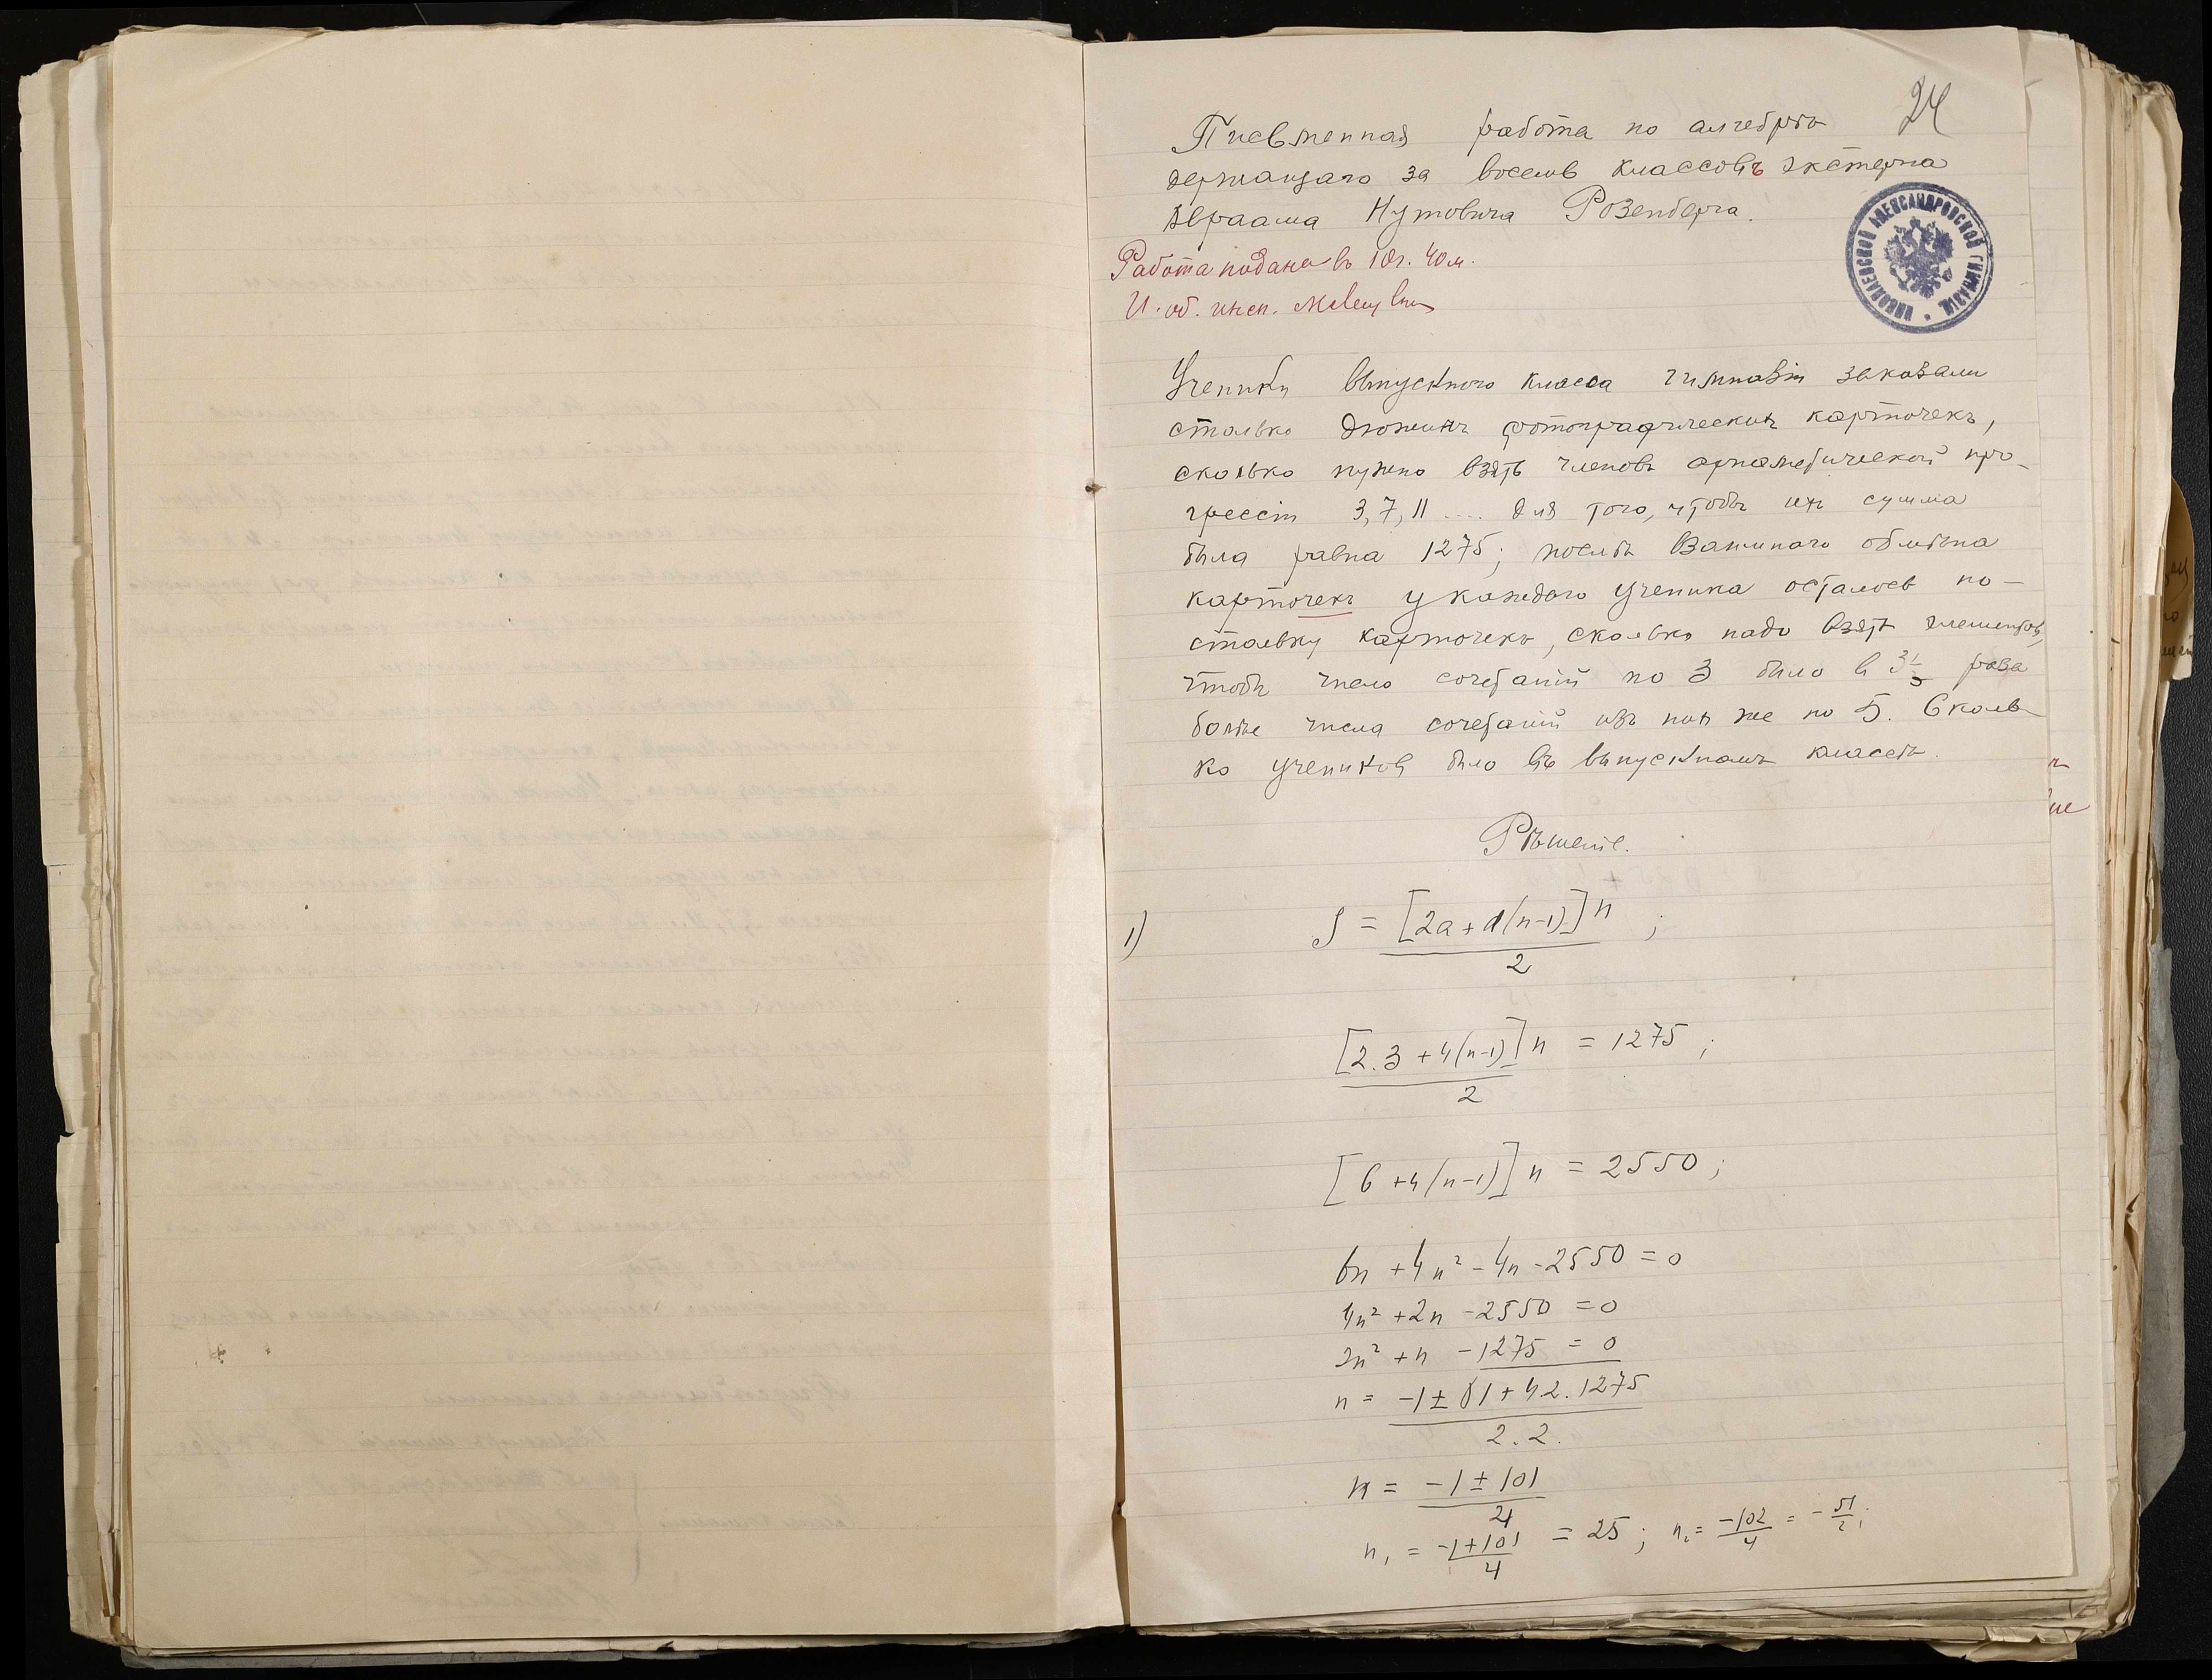 24
Письменная работа по алгебрѣ
держащаго за восемь классовъ экстерна
Авраама Нутовича Розенберга.
Работа подана въ 10 ч. 40 м.
И. об. инсп.
НИКОЛАЕВСКОЙ АЛЕКСАНДРОВСКОЙ ГИМНАЗІИ
Ученики выпускного класса гимназіи заказали
столько дюжинъ фотографическихъ карточекъ,
сколько нужно взять членовъ арифметической про-
грессіи 3, 7, 11 .... для того, чтобы ихъ сумма
была равна 1275; послѣ взаимнаго обмѣна
карточекъ у каждаго ученика осталось по-
стольку карточекъ, сколько надо взять элементовъ,
чтобы число сочетаній по 3 было в 3 1/3 раза
болѣе числа сочетаній изъ нихъ же по 5. Сколь-
ко учениковъ было въ выпускномъ классѣ.
Рѣшеніе.
1) S = [2a+d(n-1)]n / 2 ;
[2.3+4(n-1)]n / 2 = 1275 ;
[6+4(n-1)]n = 2550 ;
6n + 4n² - 4n - 2550 = 0
4n² + 2n - 2550 = 0
2n² + n - 1275 = 0
n = -1 ± √1+4.2.1275 / 2.2.
n = -1 ± 101 / 4
n₁ = -1+101 / 4 = 25 ; n₂ = -102 / 4 = - 51 / 2 ;